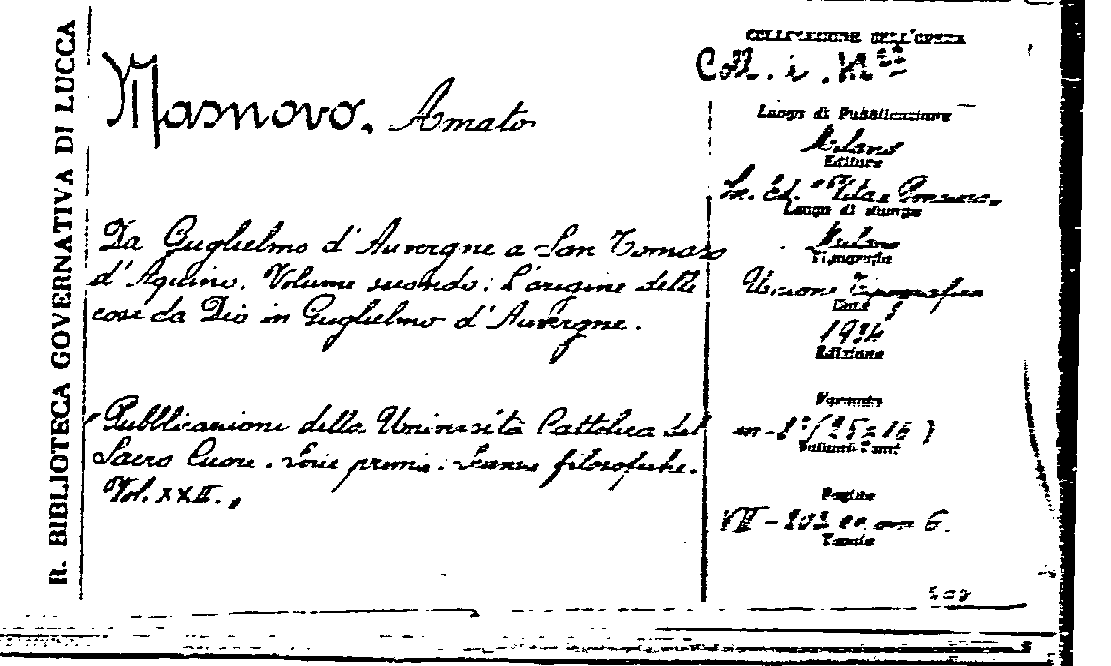 R. BIBLIOTECA GOVERNATIVA DI LUCCA
Masnovo. Amato
Da Guglielmo d'Auvergne a San Tomaso
d'Aquino. Volume secondo: L'origine delle
cose da Dio in Guglielmo d'Auvergne.
Pubblicazione della Università Cattolica del
Sacro Cuore. Serie prima: Scienze filosofiche.
Vol. XXII.
COLLOCAZIONE DELL'OPERA
Coll. i.
Luogo di Pubblicazione
Milano
Editore
Soc. Ed. "Vita e Pensiero"
Luogo di stampa
Milano
Tipografia
Unione Tipografica
Data
1934
Edizione
Formato
in-8° (25x16)
Volumi-Tomi
Pagine
VII - 202
Tavole